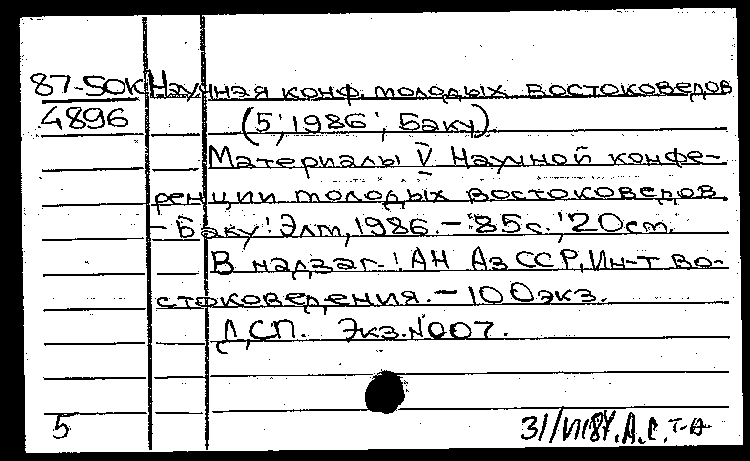 87-50К Научная конф. молодых востоковедов
4896 (5; 1986; Баку).
Материалы V Научной конфе-
ренции молодых востоковедов.
- Баку: Элм, 1986. - 85с.; 20см.
В надзаг.: АН АзССР, Ин-т во-
стоковедения. - 100экз.
ДСП. Экз.№007.
5